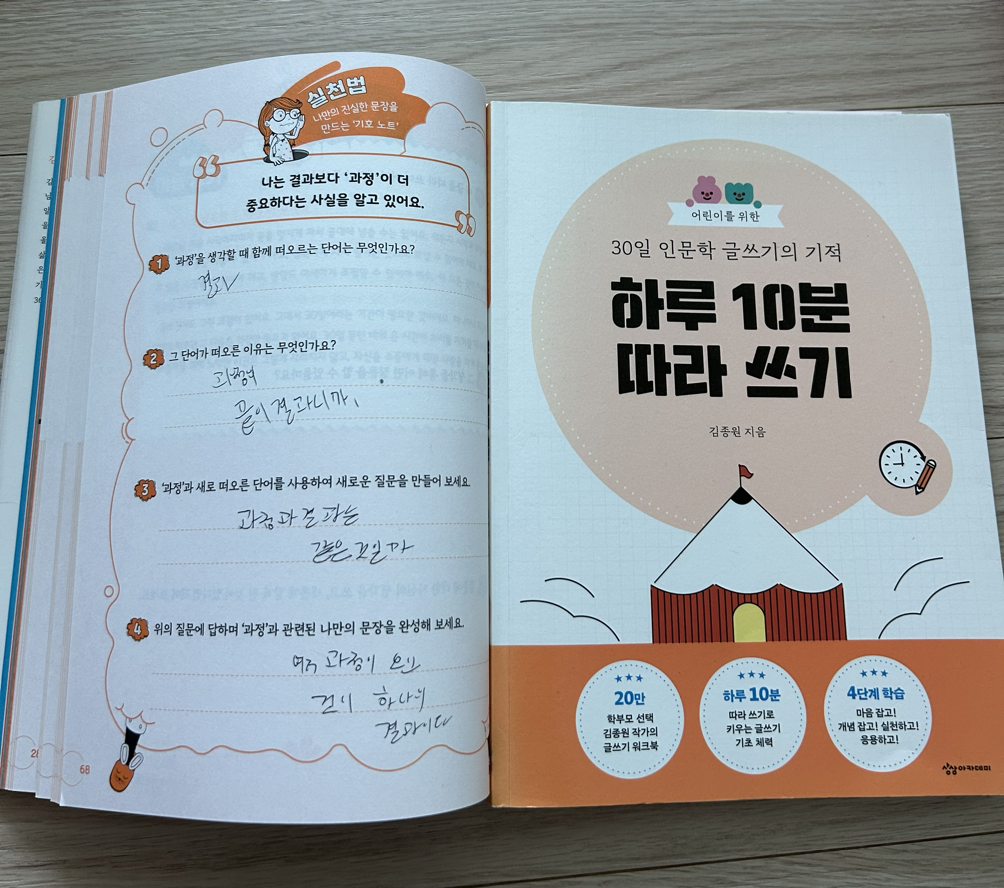 실천법
나만의 진실한 문장을
만드는 '기호 노트'
나는 결과보다 '과정'이 더
중요하다는 사실을 알고 있어요.
1 '과정'을 생각할 때 함께 떠오르는 단어는 무엇인가요?
결과
2 그 단어가 떠오른 이유는 무엇인가요?
과정의
끝이 결과니까.
3 '과정'과 새로 떠오른 단어를 사용하여 새로운 질문을 만들어 보세요.
과정과 결과는
같은 것일까
4 위의 질문에 답하며 '과정'과 관련된 나만의 문장을 완성해 보세요.
과정이
하나의
결과이다
68
어린이를 위한
30일 인문학 글쓰기의 기적
하루 10분
따라 쓰기
김종원 지음
20만
학부모 선택
김종원 작가의
글쓰기 워크북
하루 10분
따라 쓰기로
키우는 글쓰기
기초 체력
4단계 학습
마음 잡고!
개념 잡고! 실천하고!
응용하고!
상상아카데미